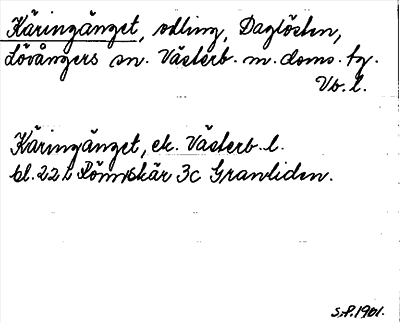 Käringänget, odling, Daglösten,
Lövångers sn. Västerb. m. doms. tg.
Vb. l.
Käringänget, ek. Västerb. l.
bl. 22 L Rönnskär 3c Granliden.
S.P. 1901.